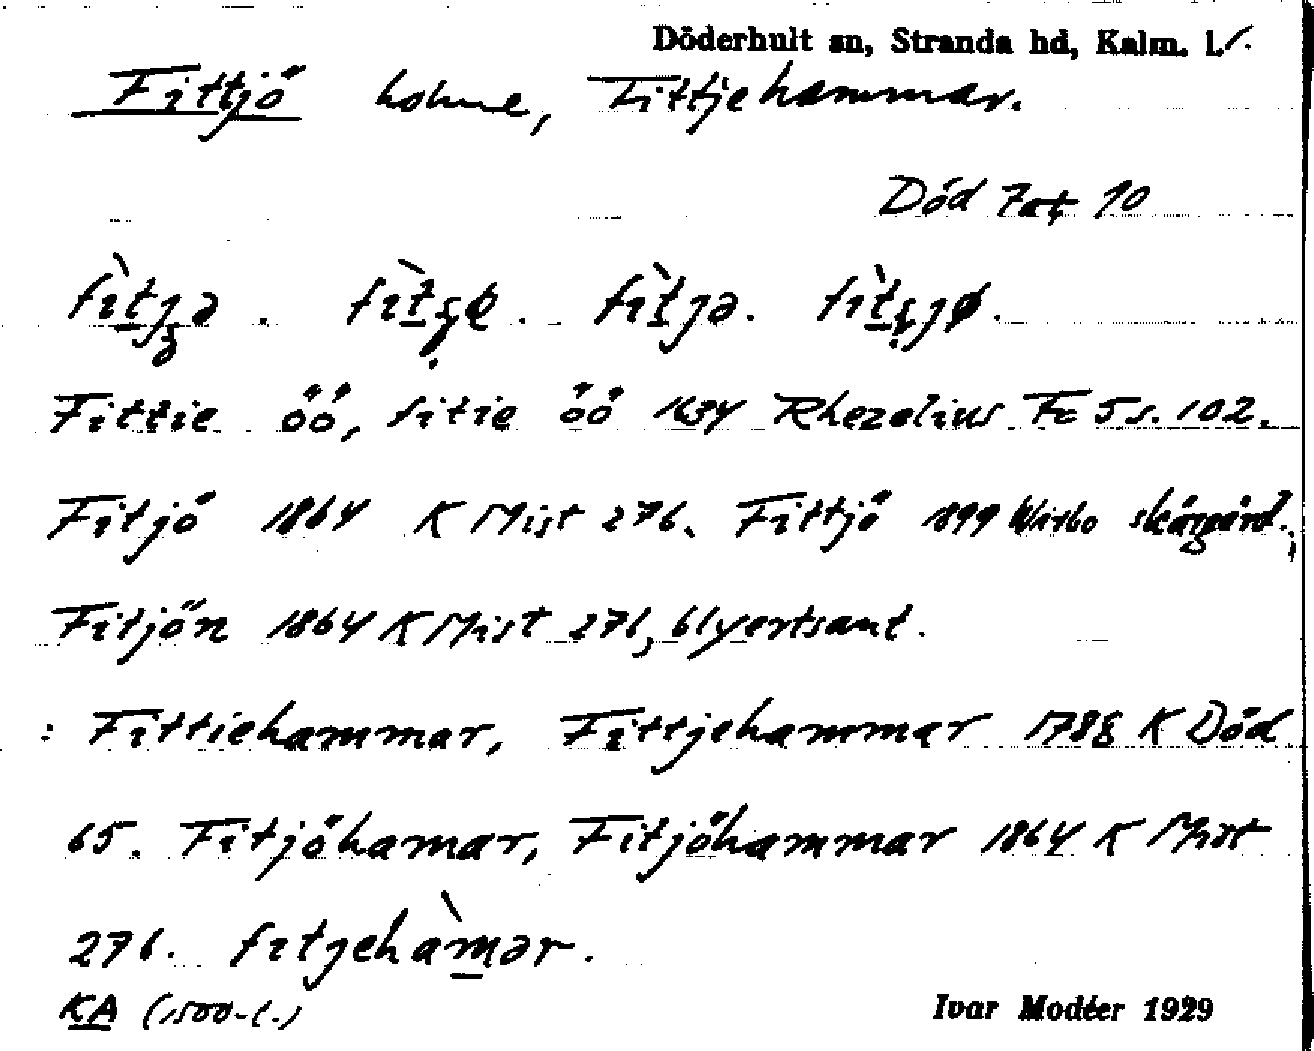 Döderhult sn, Stranda hd, Kalm. l.
Fittjö holme, Fittjehammar.
Död 7at 10
Fittie öö, fitie öö 1634 Rhezelius Fc 5 s. 102.
Fitjö 1864 K Mist 276. Fittjö 1899 Wirbo skärgård.;
Fitjön 1864 K Mist 276, blyertsant.
: Fittiehammar, Fittjehammar 1788 K Död
65. Fitjöhamar, Fitjöhammar 1864 K Mist
276. fıtjehàmar.
KA (1500-t.)
Ivar Modéer 1929